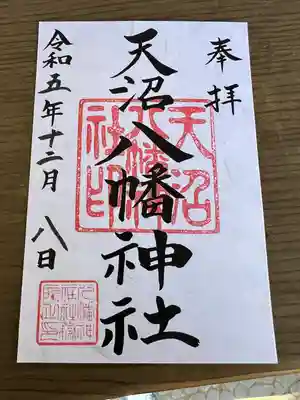 奉拝
天沼八幡神社
天沼八幡神社印
令和五年十二月八日